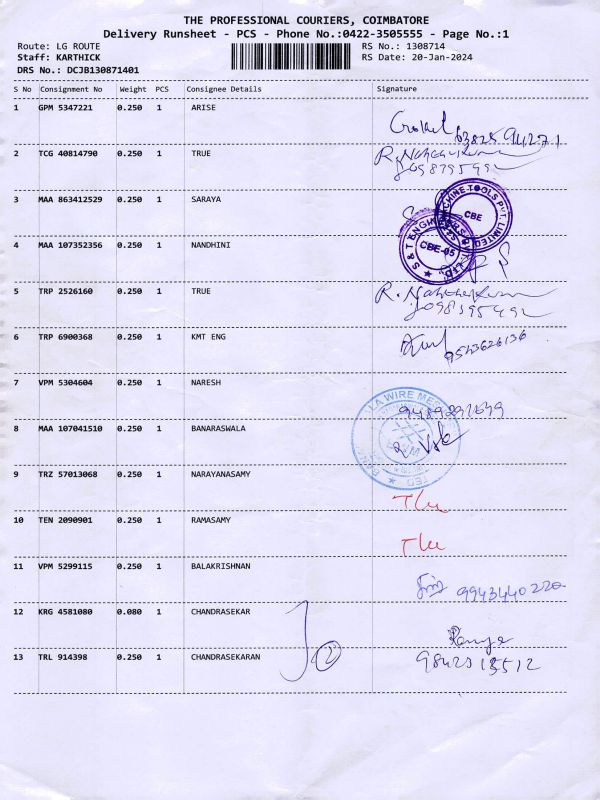 THE PROFESSIONAL COURIERS, COIMBATORE
Delivery Runsheet - PCS - Phone No.:0422-3505555 - Page No.:1
Route: LG ROUTE RS No.: 1308714
Staff: KARTHICK RS Date: 20-Jan-2024
DRS No.: DCJB130871401
S No Consignment No Weight PCS Consignee Details Signature
1 GPM 5347221 0.250 1 ARISE
2 TCG 40814790 0.250 1 TRUE
3 MAA 863412529 0.250 1 SARAYA
CBE
4 MAA 107352356 0.250 1 NANDHINI
CBE-05
5 TRP 2526160 0.250 1 TRUE
6 TRP 6900368 0.250 1 KMT ENG
7 VPM 5304604 0.250 1 NARESH
8 MAA 107041510 0.250 1 BANARASWALA
9 TRZ 57013068 0.250 1 NARAYANASAMY
10 TEN 2090901 0.250 1 RAMASAMY
11 VPM 5299115 0.250 1 BALAKRISHNAN
9943440220
12 KRG 4581080 0.080 1 CHANDRASEKAR
13 TRL 914398 0.250 1 CHANDRASEKARAN
2